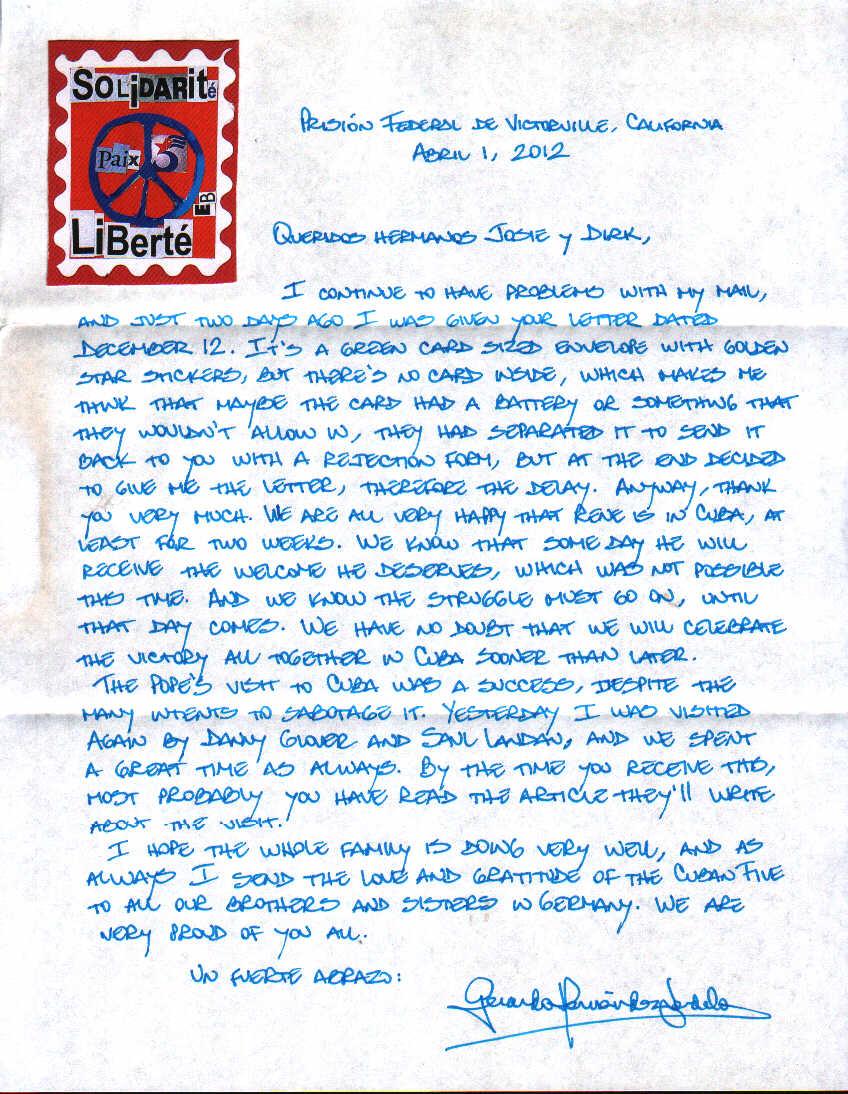 SOLiDARité
Paix 5
EB
LiBerté
PRISIÓN FEDERAL DE VICTORVILLE, CALIFORNIA
ABRIL 1, 2012
QUERIDOS HERMANOS JOSIE Y DIRK,
I CONTINUE TO HAVE PROBLEMS WITH MY MAIL,
AND JUST TWO DAYS AGO I WAS GIVEN YOUR LETTER DATED
DECEMBER 12. IT'S A GREEN CARD SIZED ENVELOPE WITH GOLDEN
STAR STICKERS, BUT THERE'S NO CARD INSIDE, WHICH MAKES ME
THINK THAT MAYBE THE CARD HAD A BATTERY OR SOMETHING THAT
THEY WOULDN'T ALLOW IN, THEY HAD SEPARATED IT TO SEND IT
BACK TO YOU WITH A REJECTION FORM, BUT AT THE END DECIDED
TO GIVE ME THE LETTER, THEREFORE THE DELAY. ANYWAY, THANK
YOU VERY MUCH. WE ARE ALL VERY HAPPY THAT RENE IS IN CUBA, AT
LEAST FOR TWO WEEKS. WE KNOW THAT SOME DAY HE WILL
RECEIVE THE WELCOME HE DESERVES, WHICH WAS NOT POSSIBLE
THIS TIME. AND WE KNOW THE STRUGGLE MUST GO ON, UNTIL
THAT DAY COMES. WE HAVE NO DOUBT THAT WE WILL CELEBRATE
THE VICTORY ALL TOGETHER IN CUBA SOONER THAN LATER.
THE POPE'S VISIT TO CUBA WAS A SUCCESS, DESPITE THE
MANY INTENTS TO SABOTAGE IT. YESTERDAY I WAS VISITED
AGAIN BY DANNY GLOVER AND SAUL LANDAU, AND WE SPENT
A GREAT TIME AS ALWAYS. BY THE TIME YOU RECEIVE THIS,
MOST PROBABLY YOU HAVE READ THE ARTICLE THEY'LL WRITE
ABOUT THE VISIT.
I HOPE THE WHOLE FAMILY IS DOING VERY WELL, AND AS
ALWAYS I SEND THE LOVE AND GRATITUDE OF THE CUBAN FIVE
TO ALL OUR BROTHERS AND SISTERS IN GERMANY. WE ARE
VERY PROUD OF YOU ALL.
UN FUERTE ABRAZO:
Gerardo Hernández Nordelo